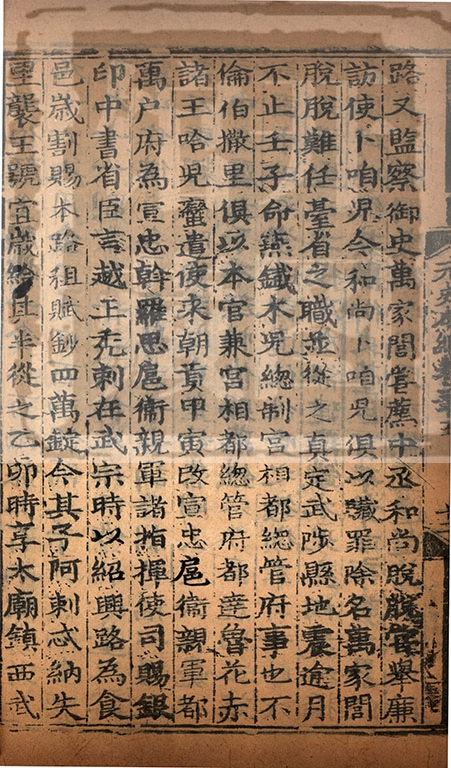 路又監察御史萬家閭嘗薦中丞和尚脫脫嘗舉廉
訪使卜咱兒今和尚卜咱兒俱以贓罪除名萬家閭
脫脫難任臺省之職並從之真定武陟縣地震逾月
不止壬子命燕鐵木兒總制宮相都總管府事也不
倫伯撒里俱以本官兼宮相都總管府都達魯花赤
諸王哈兒蠻遣使來朝貢甲寅改宣忠扈衞親軍都
萬户府為宣忠斡羅思扈衞親軍諸指揮使司賜銀
印中書省臣言越王禿剌在武宗時以紹興路為食
邑歲割賜本路租賦鈔四萬錠今其子阿剌忒納失
里襲王號宜歲給其半從之乙卯時享太廟鎮西武